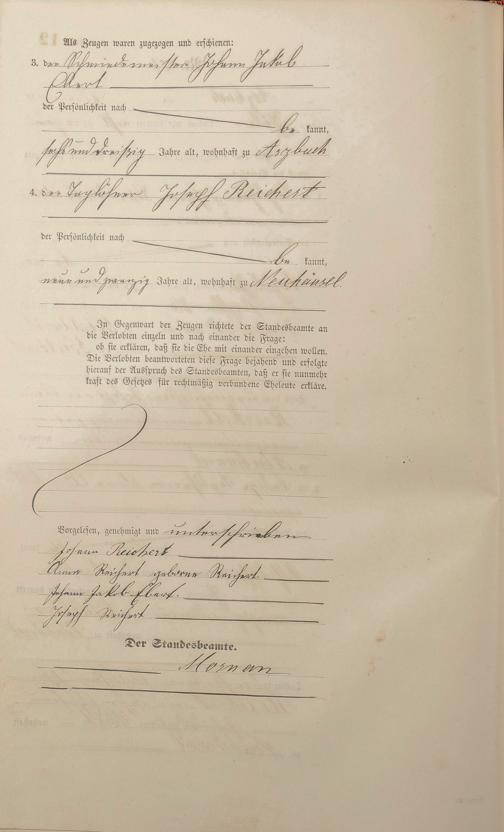 Als Zeugen waren zugezogen und erschienen:
3. der Schmiedemeister Johann Jakob
Ebert
der Persönlichkeit nach
be kannt,
sechs und dreißig Jahre alt, wohnhaft zu Aszbach
4. der Taglöhner Joseph Reichert
der Persönlichkeit nach
be kannt,
neun und zwanzig Jahre alt, wohnhaft zu Neuhäusel
In Gegenwart der Zeugen richtete der Standesbeamte an
die Verlobten einzeln und nach einander die Frage:
ob sie erklären, daß sie die Ehe mit einander eingehen wollen.
Die Verlobten beantworteten diese Frage bejahend und erfolgte
hierauf der Ausspruch des Standesbeamten, daß er sie nunmehr
kraft des Gesetzes für rechtmäßig verbundene Eheleute erkläre.
Vorgelesen, genehmigt und unterschrieben
Johann Reichert
Anna Reichert geborne Reichert
Johann Jakob Ebert.
Joseph Reichert
Der Standesbeamte.